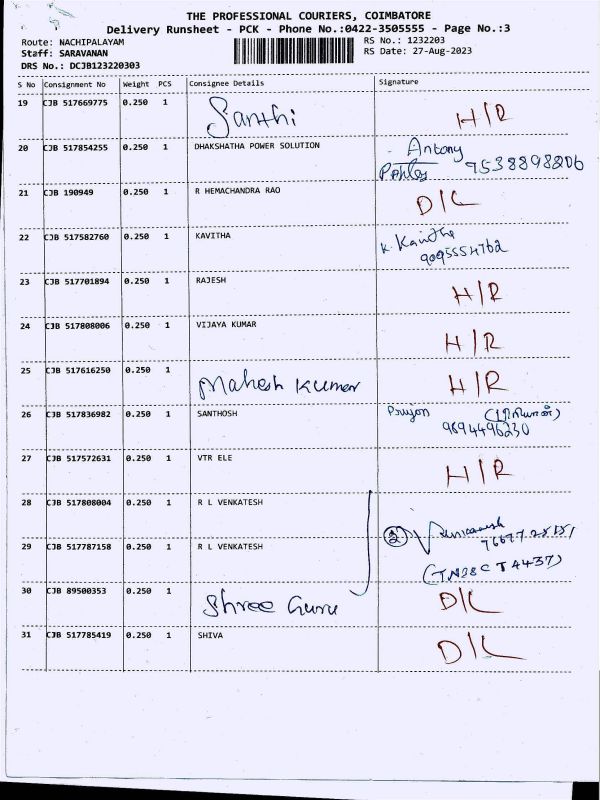 THE PROFESSIONAL COURIERS, COIMBATORE
Delivery Runsheet - PCK - Phone No.:0422-3505555 - Page No.:3
Route: NACHIPALAYAM
RS No.: 1232203
Staff: SARAVANAN
RS Date: 27-Aug-2023
DRS No.: DCJB123220303
S No Consignment No Weight PCS Consignee Details Signature
19 CJB 517669775 0.250 1 Santhi H/R
20 CJB 517854255 0.250 1 DHAKSHATHA POWER SOLUTION Antony
9538898806
21 CJB 190949 0.250 1 R HEMACHANDRA RAO D/L
22 CJB 517582760 0.250 1 KAVITHA K. Kavitha
9095554762
23 CJB 517701894 0.250 1 RAJESH H/R
24 CJB 517808006 0.250 1 VIJAYA KUMAR H/R
25 CJB 517616250 0.250 1 Mahesh Kumar H/R
26 CJB 517836982 0.250 1 SANTHOSH (பிரியான்)
9694496230
27 CJB 517572631 0.250 1 VTR ELE H/R
28 CJB 517808004 0.250 1 R L VENKATESH
29 CJB 517787158 0.250 1 R L VENKATESH (2)
(TN38CT4437)
30 CJB 89500353 0.250 1 Shree Guru D/L
31 CJB 517785419 0.250 1 SHIVA D/L